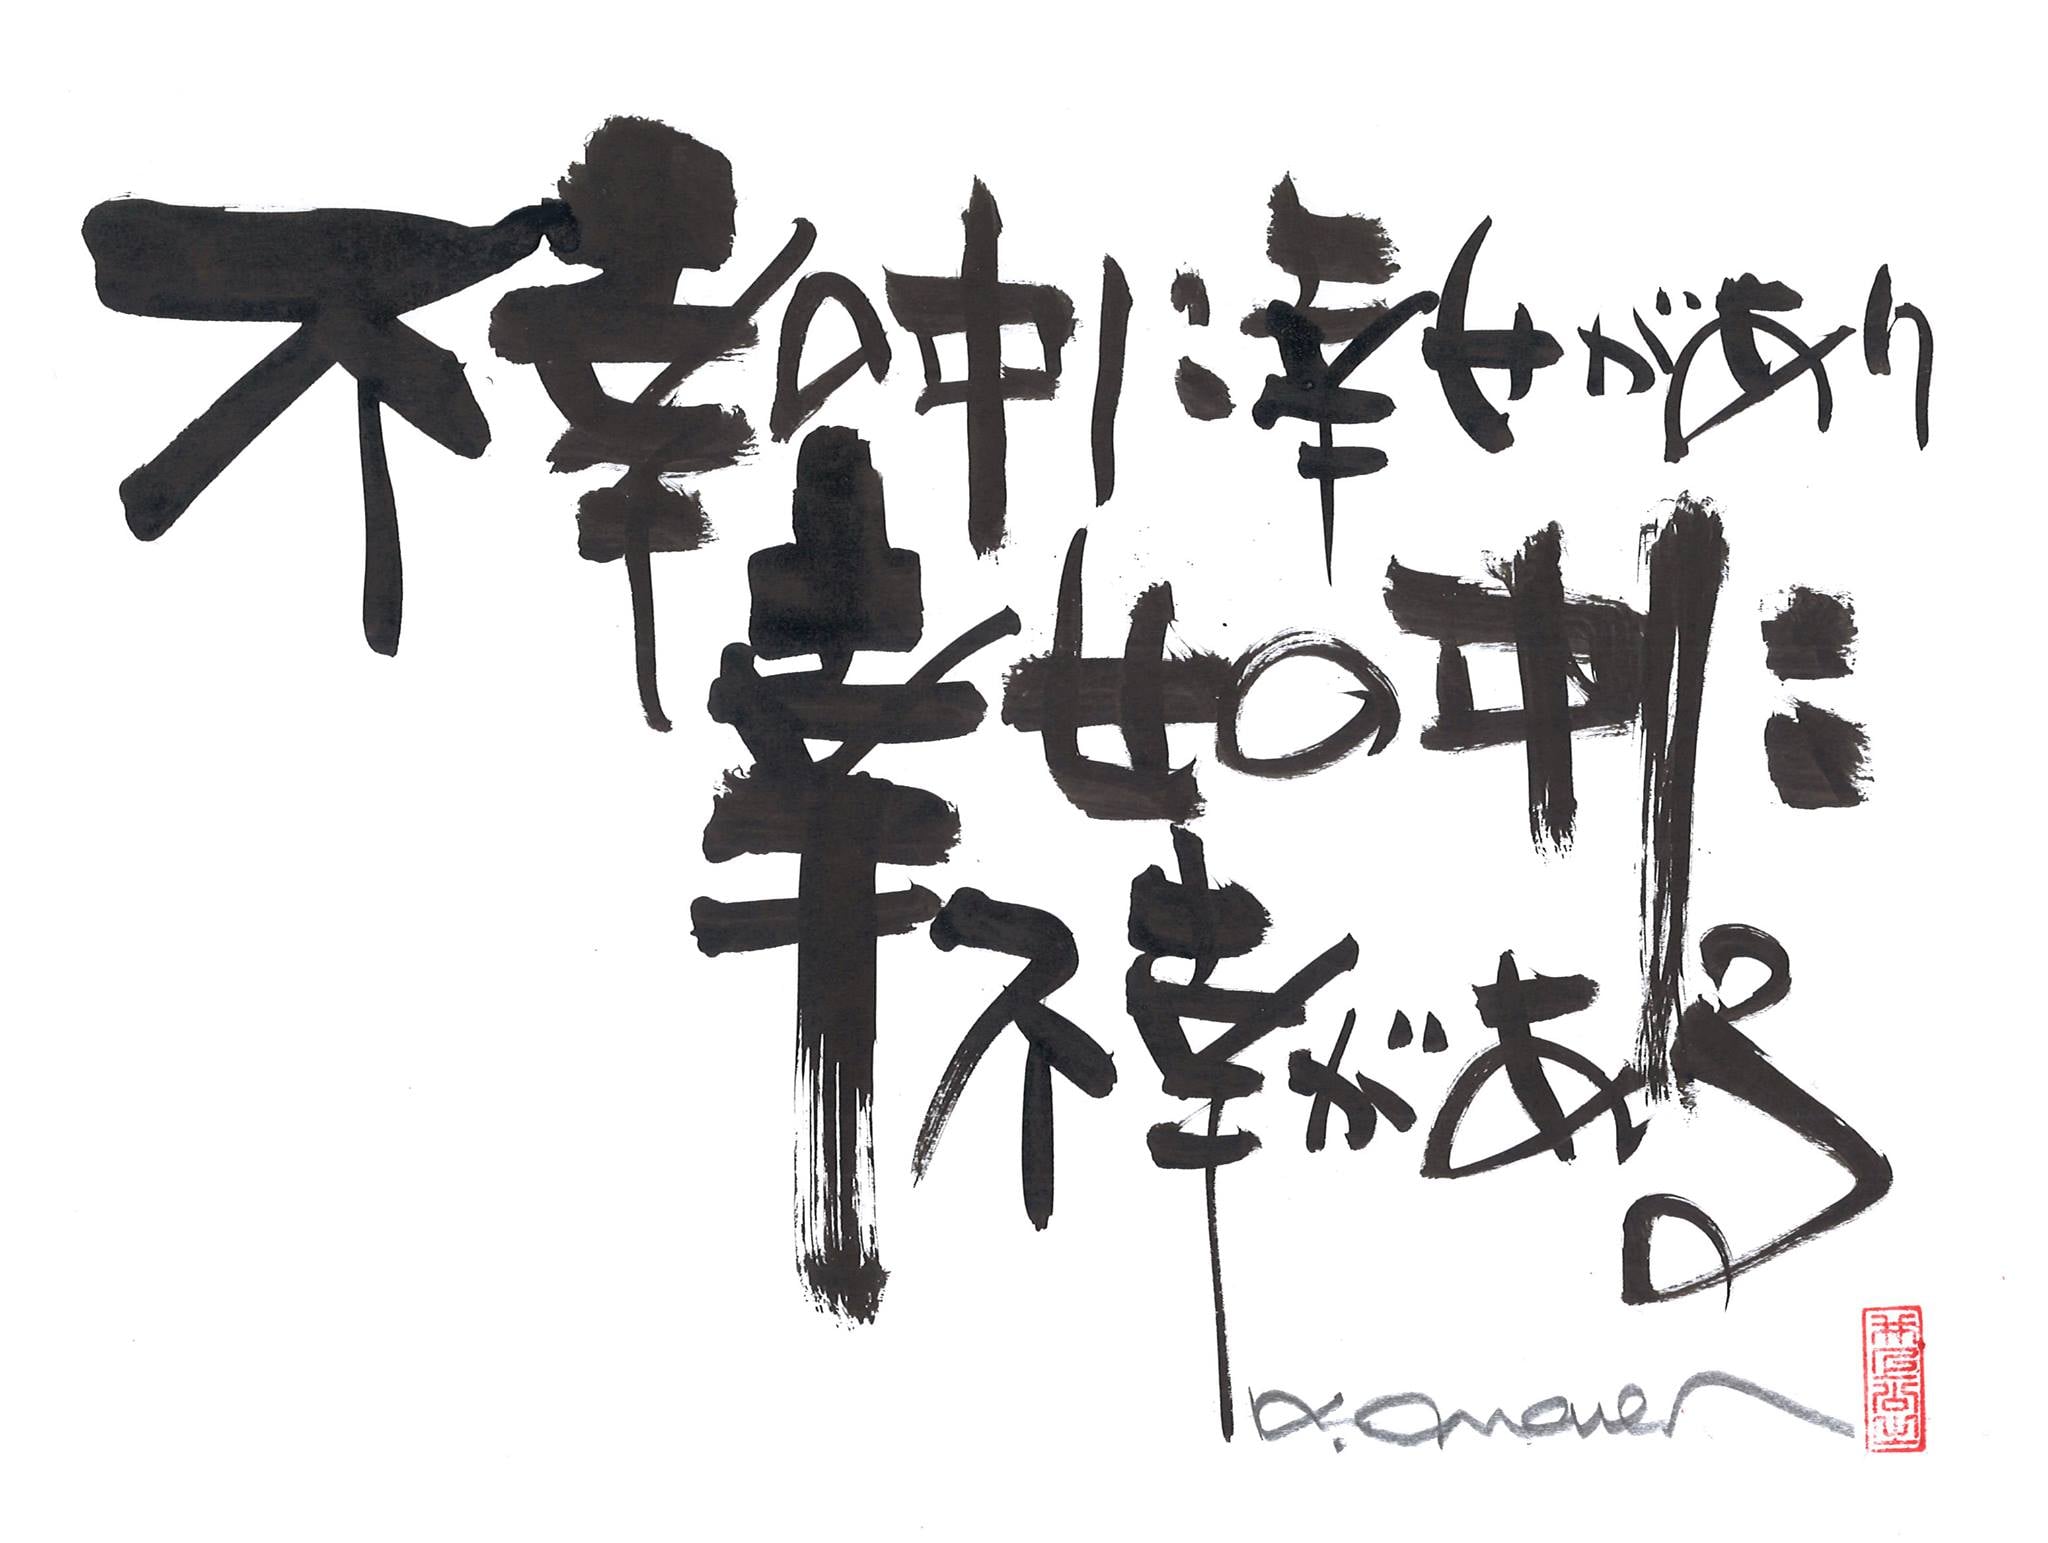 不幸の中に幸せがあり
幸せの中に
不幸がある